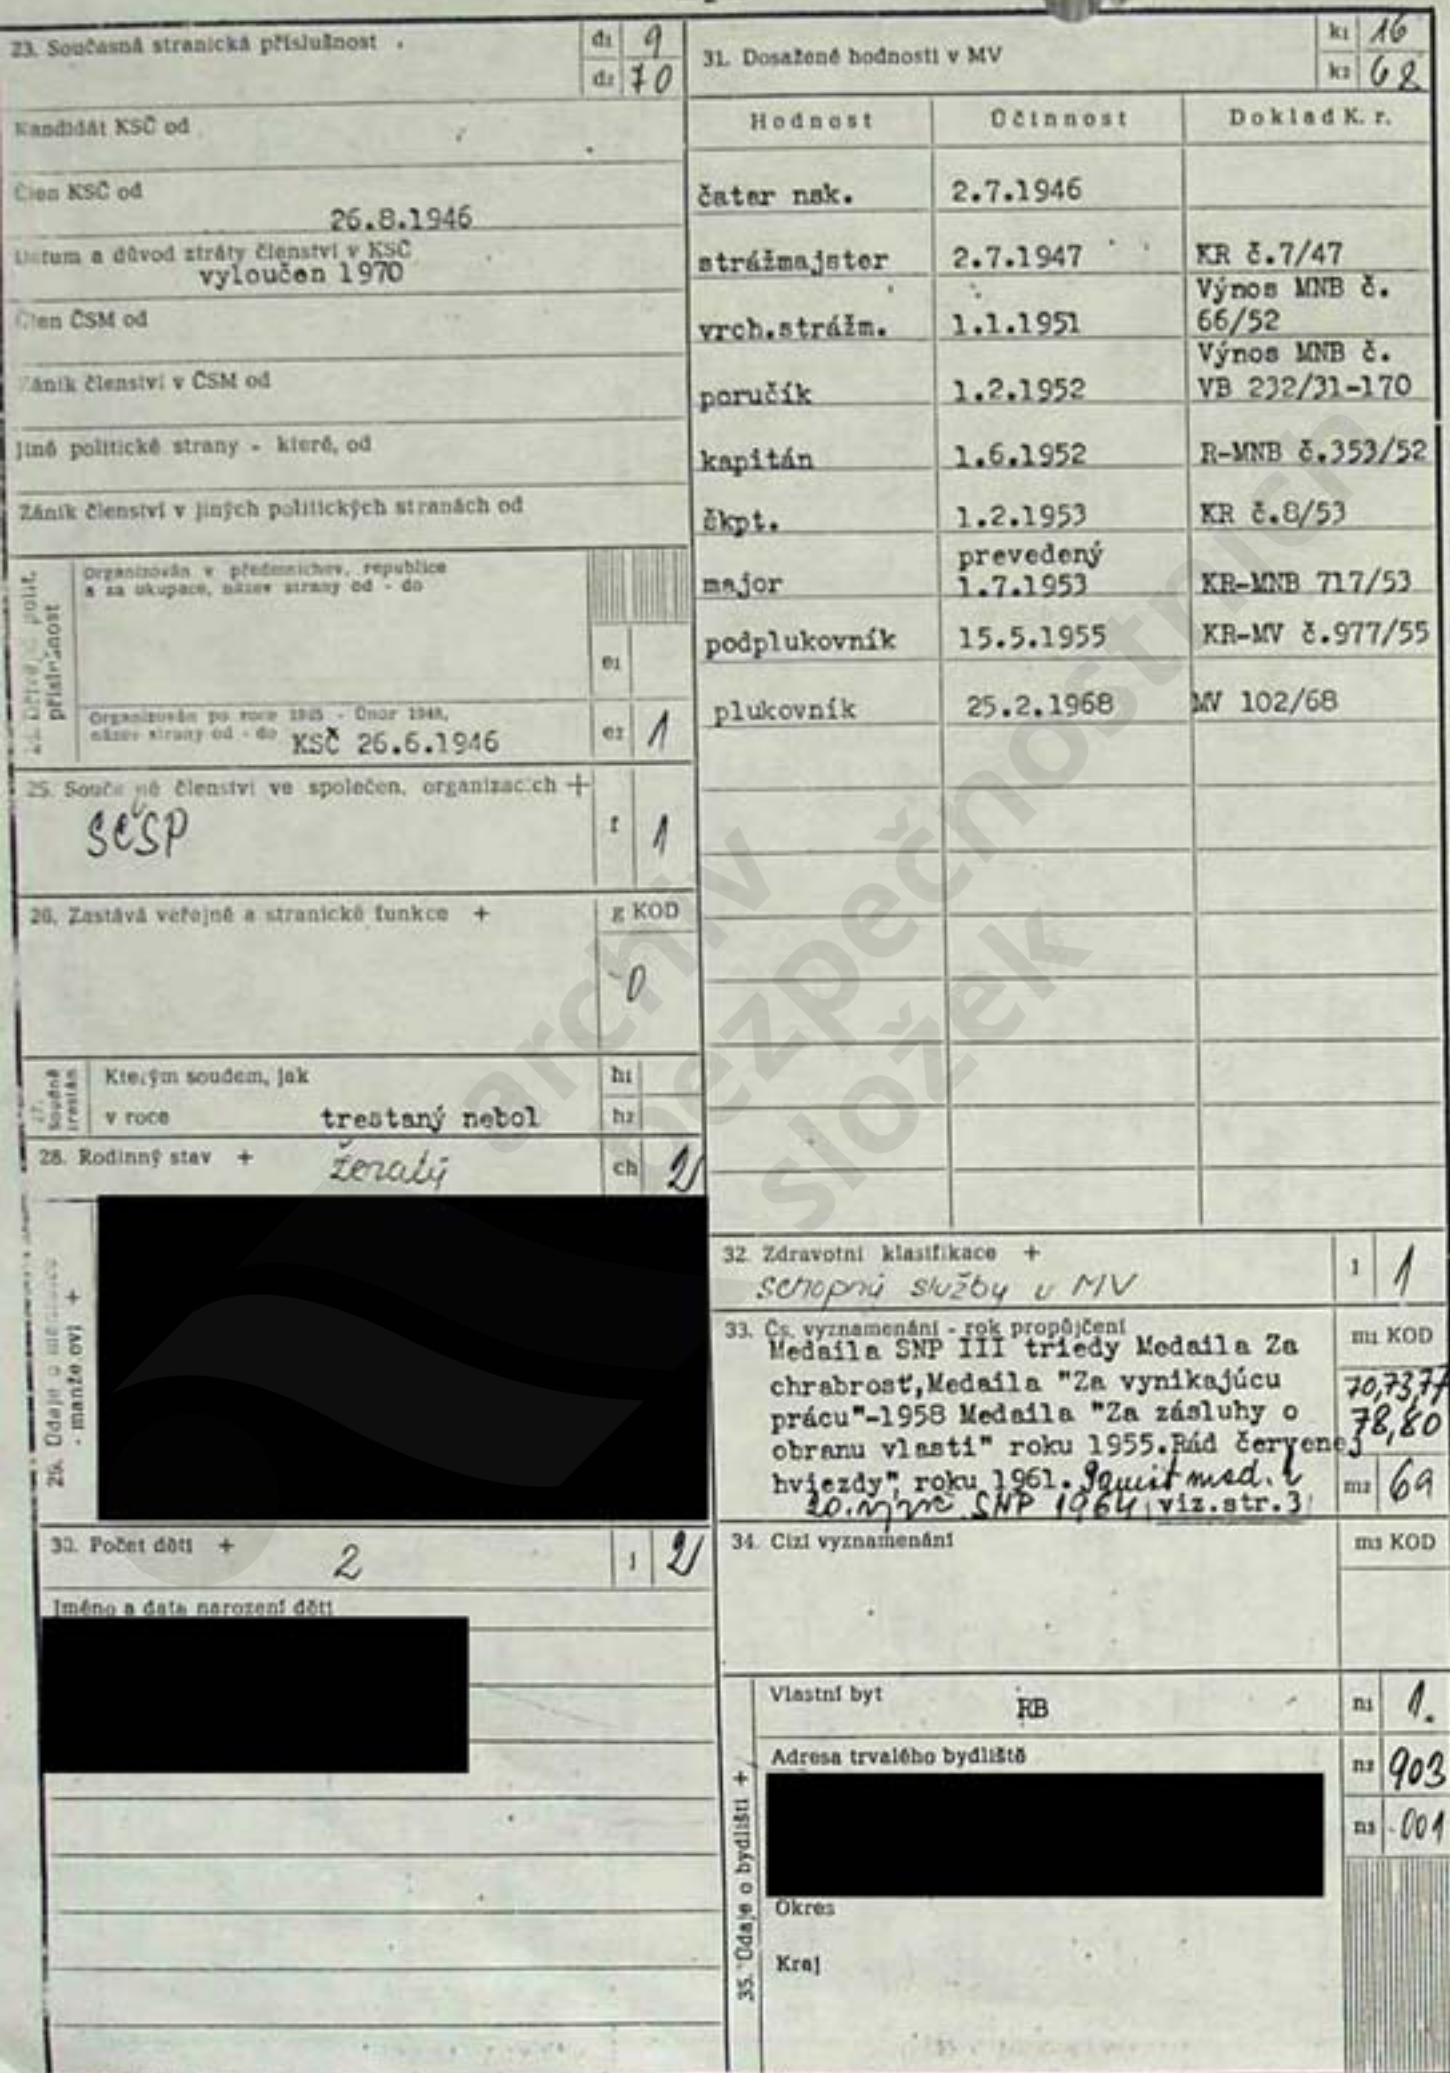 23. Současná stranická příslušnost
d1 9
d2 70
Kandidát KSČ od
Člen KSČ od
26.8.1946
Datum a důvod ztráty členství v KSČ
vyloučen 1970
Člen ČSM od
Zánik členství v ČSM od
Jiné politické strany - které, od
Zánik členství v jiných politických stranách od
polit.
příslušnost
Organizován v předmnichov. republice
a za okupace, název strany od - do
e1
Organizován po roce 1945 - Únor 1948,
název strany od - do KSČ 26.6.1946
e2 1
25. Současné členství ve společen. organizacích +
SČSP
f 1
26. Zastává veřejné a stranické funkce +
g KOD
0
27. Soudně trestán
Kterým soudem, jak
v roce trestaný nebol
h1
h2
28. Rodinný stav + ženatý
ch 2
29. Údaje o manželce
- manželovi +
30. Počet dětí + 2
j 2
Jméno a data narození dětí
31. Dosažené hodnosti v MV
k1 16
k2 68
Hodnost Účinnost Doklad K. r.
čatar nsk. 2.7.1946
strážmajster 2.7.1947 KR č.7/47
Výnos MNB č.
vrch.strážm. 1.1.1951 66/52
Výnos MNB č.
poručík 1.2.1952 VB 232/31-170
kapitán 1.6.1952 R-MNB č.353/52
škpt. 1.2.1953 KR č.8/53
prevedený
major 1.7.1953 KR-MNB 717/53
podplukovník 15.5.1955 KR-MV č.977/55
plukovník 25.2.1968 MV 102/68
32. Zdravotní klasifikace +
l 1
schopný služby v MV
33. Čs. vyznamenání - rok propůjčení
m1 KOD
Medaila SNP III triedy Medaila Za
chrabrosť,Medaila "Za vynikajúcu
prácu"-1958 Medaila "Za zásluhy o
obranu vlasti" roku 1955.Rád červenej
hviezdy" roku 1961.
20. SNP 1964 viz.str.3
70,73,77
78,80
m2 69
34. Cizí vyznamenání
m3 KOD
35. Údaje o bydlišti +
Vlastní byt RB
n1 1.
Adresa trvalého bydliště
n2 903
n3 001
Okres
Kraj
archiv
bezpečnostních
složek